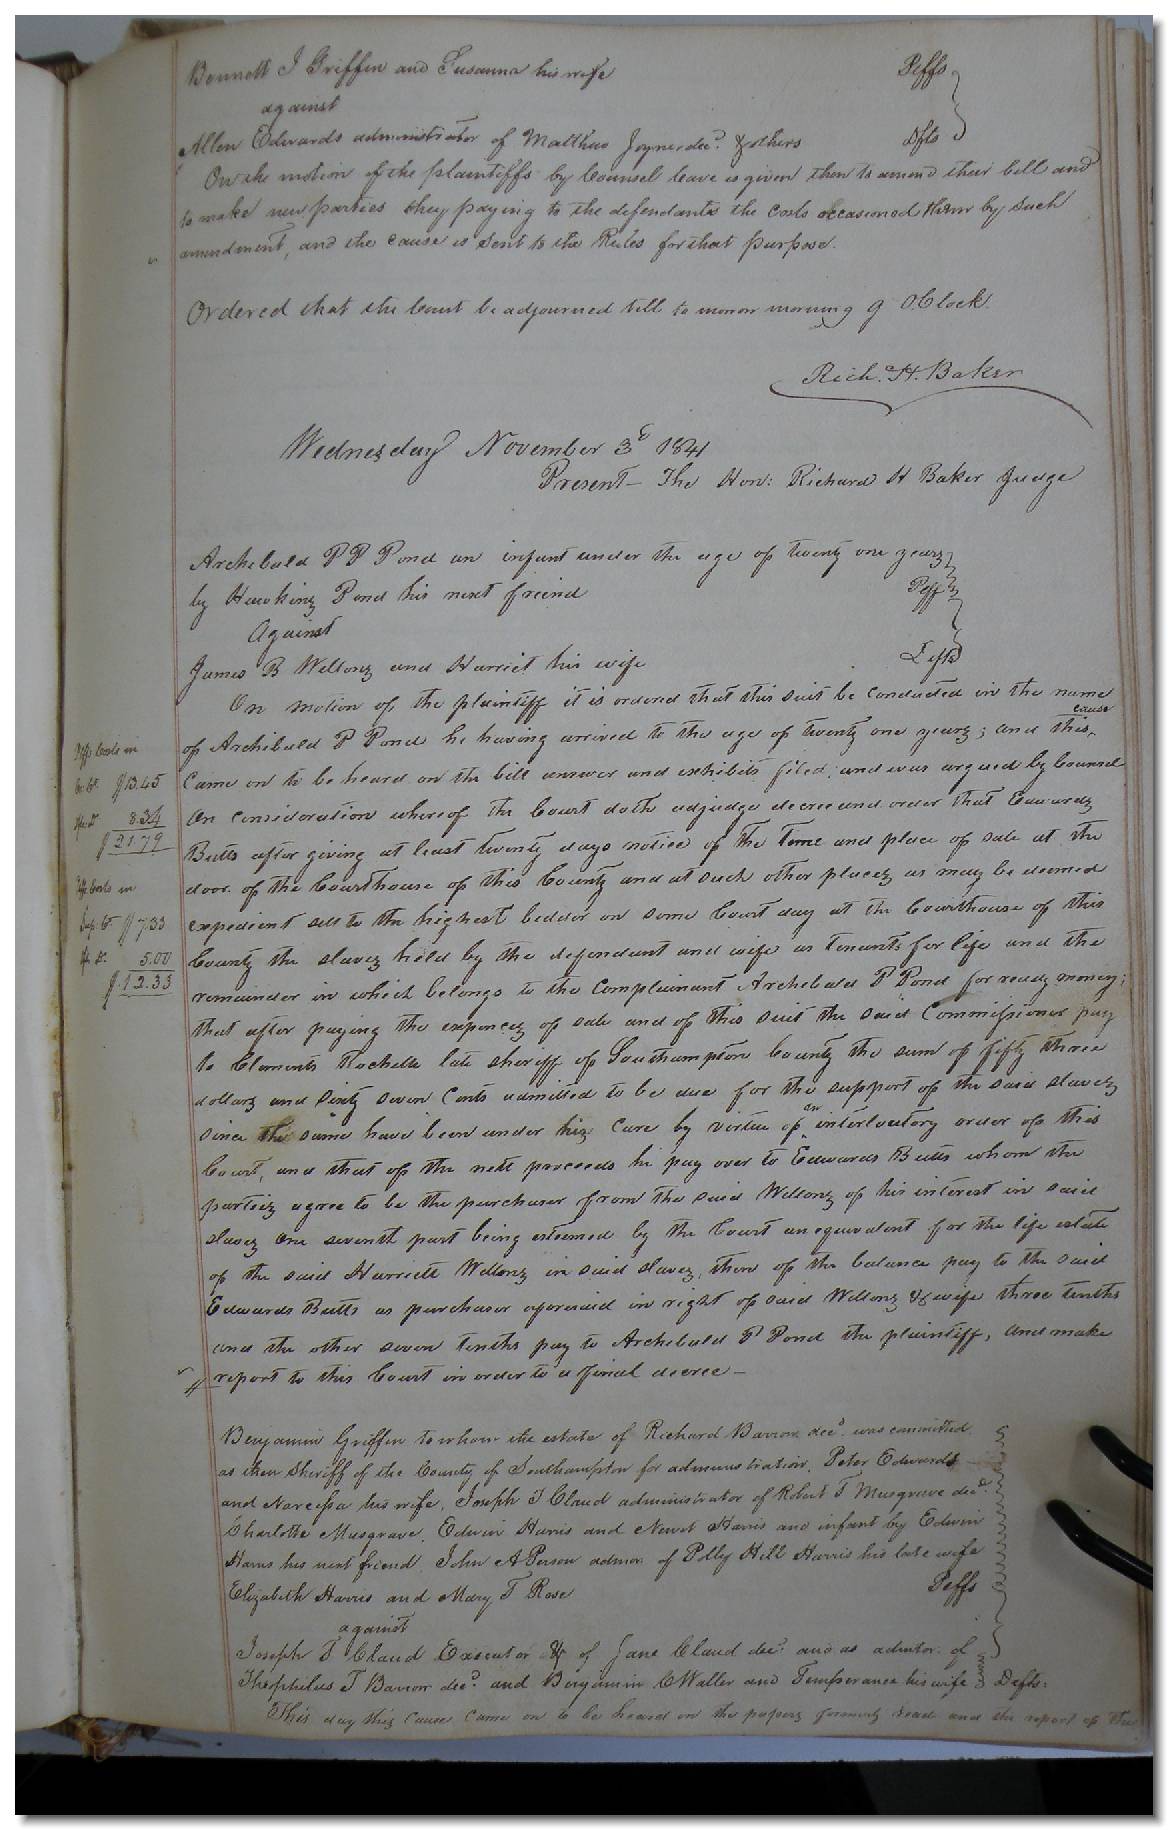 Bennett J Griffin and Susanna his wife Plffs
against
Allen Edwards administrator of Matthew Joyner decd. & others Dfts
On the motion of the plaintiffs by Counsel leave is given them to amend their bill and
to make new parties they paying to the defendants the costs occasioned them by such
amendment, and the cause is sent to the Rules for that purpose.
Ordered that the Court be adjourned till to morrow morning 9 O.Clock.
Rich. H. Baker
Wednesday November 3d 1841
Present - The Hon: Richard H Baker Judge
Archibald P P Pond an infant under the age of twenty one years
by Hawking Pond his next friend Plff
Against
James B Wellons and Harriet his wife Defts
On motion of the plaintiff it is ordered that this suit be conducted in the name
of Archibald P Pond he having arrived to the age of twenty one years; and this cause
Came on to be heard on the bill answer and exhibits filed; and was argued by Counsel
On consideration whereof the Court doth adjudge decree and order that Edwards
Butts after giving at least twenty days notice of the time and place of sale at the
door of the Courthouse of this County and at such other places as may be deemed
expedient sell to the highest bidder on some Court day at the Courthouse of this
County the slaves held by the defendant and wife as tenants for life and the
remainder in which belongs to the Complainant Archibald P Pond for ready money;
that after paying the expences of sale and of this suit the said Commissioner pay
to Clements Rochelle late sheriff of Southampton County the sum of fifty three
dollars and sixty seven Cents admitted to be due for the support of the said slaves
since the same have been under his care by virtue of an interlocutory order of this
Court, and that of the nett proceeds he pay over to Edwards Butts whom the
parties agree to be the purchaser from the said Wellons of his interest in said
slaves one seventh part being esteemed by the Court an equivalent for the life estate
of the said Harriett Wellons in said slaves, then of the balance pay to the said
Edwards Butts as purchaser aforesaid in right of said Wellons & wife three tenths
and the other seven tenths pay to Archibald P Pond the plaintiff, and make
report to this Court in order to a final decree -
Plffs Costs in
Co. Ct. $13.45
8.34
$21.79
Costs in
Sup. Ct. $7.33
5.00
$12.33
Benjamin Griffin to whom the estate of Richard Barrow decd. was committed
as then Sheriff of the County of Southampton for administration, Peter Edwards
and Narcissa his wife, Joseph T Claud administrator of Robert T Musgrave decd.
Charlotte Musgrave, Edwin Harris and Newit Harris an infant by Edwin
Harris his next friend, John A Person admor. of Polly Hill Harris his late wife
Elizabeth Harris and Mary T Rose Plffs
against
Joseph T Claud Executor &c of Jane Claud decd. and as admtor. of
Theophilus T Barrow decd. and Benjamin C Waller and Temperance his wife Defts:
This day this Cause Came on to be heard on the papers formerly read and the report of the